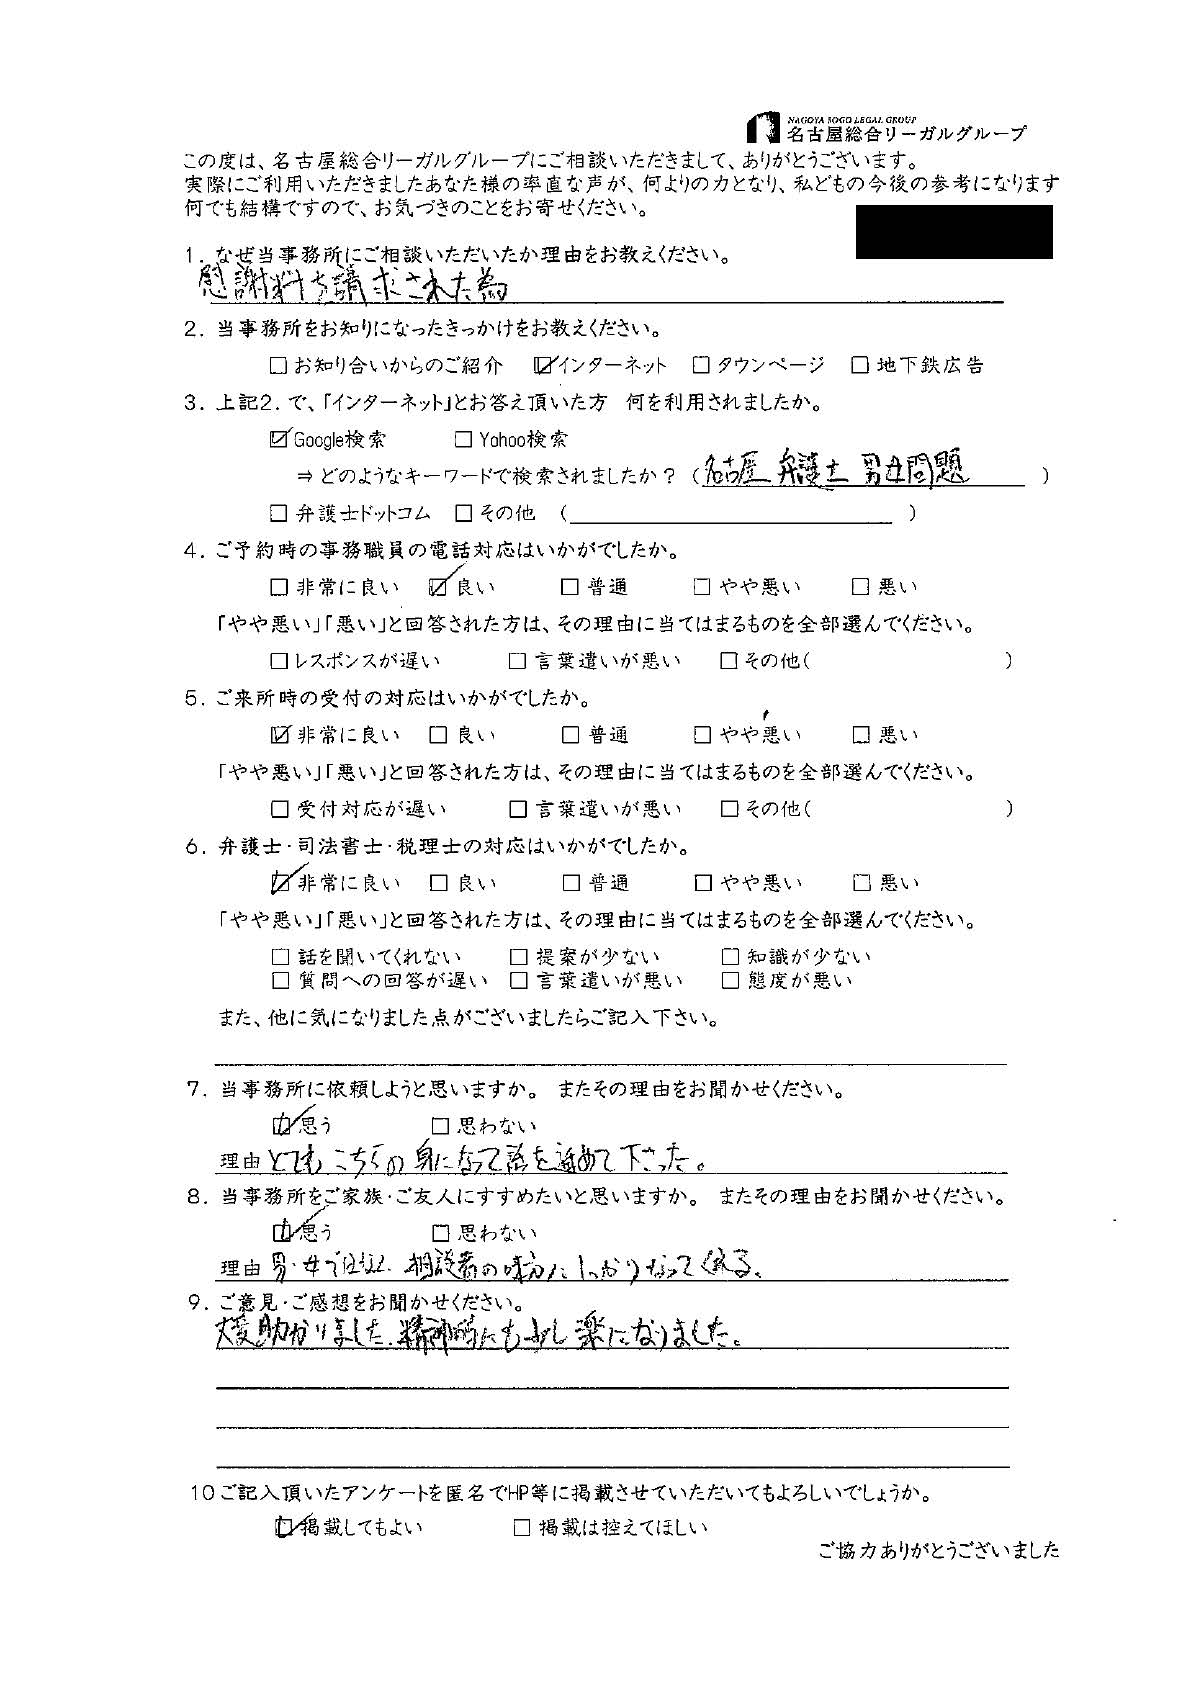 NAGOYA SOGO LEGAL GROUP
名古屋総合リーガルグループ
この度は、名古屋総合リーガルグループにご相談いただきまして、ありがとうございます。
実際にご利用いただきましたあなた様の率直な声が、何よりの力となり、私どもの今後の参考になります
何でも結構ですので、お気づきのことをお寄せください。
1. なぜ当事務所にご相談いただいたか理由をお教えください。
慰謝料を請求された為
2. 当事務所をお知りになったきっかけをお教えください。
□お知り合いからのご紹介 ☑インターネット □タウンページ □地下鉄広告
3. 上記2.で、「インターネット」とお答え頂いた方 何を利用されましたか。
☑Google検索 □Yahoo検索
⇒どのようなキーワードで検索されましたか？(名古屋 弁護士 男女問題)
□弁護士ドットコム □その他 ( )
4. ご予約時の事務職員の電話対応はいかがでしたか。
□非常に良い ☑良い □普通 □やや悪い □悪い
「やや悪い」「悪い」と回答された方は、その理由に当てはまるものを全部選んでください。
□レスポンスが遅い □言葉遣いが悪い □その他( )
5. ご来所時の受付の対応はいかがでしたか。
☑非常に良い □良い □普通 □やや悪い □悪い
「やや悪い」「悪い」と回答された方は、その理由に当てはまるものを全部選んでください。
□受付対応が遅い □言葉遣いが悪い □その他( )
6. 弁護士・司法書士・税理士の対応はいかがでしたか。
☑非常に良い □良い □普通 □やや悪い □悪い
「やや悪い」「悪い」と回答された方は、その理由に当てはまるものを全部選んでください。
□話を聞いてくれない □提案が少ない □知識が少ない
□質問への回答が遅い □言葉遣いが悪い □態度が悪い
また、他に気になりました点がございましたらご記入下さい。
7. 当事務所に依頼しようと思いますか。 またその理由をお聞かせください。
☑思う □思わない
理由 とてもこちらの身になって話を進めて下さった。
8. 当事務所をご家族・ご友人にすすめたいと思いますか。 またその理由をお聞かせください。
☑思う □思わない
理由 男・女ではなく、相談者の味方にしっかりなってくれる、
9. ご意見・ご感想をお聞かせください。
大変助かりました、精神的にも少し楽になりました。
10 ご記入頂いたアンケートを匿名でHP等に掲載させていただいてもよろしいでしょうか。
☑掲載してもよい □掲載は控えてほしい
ご協力ありがとうございました